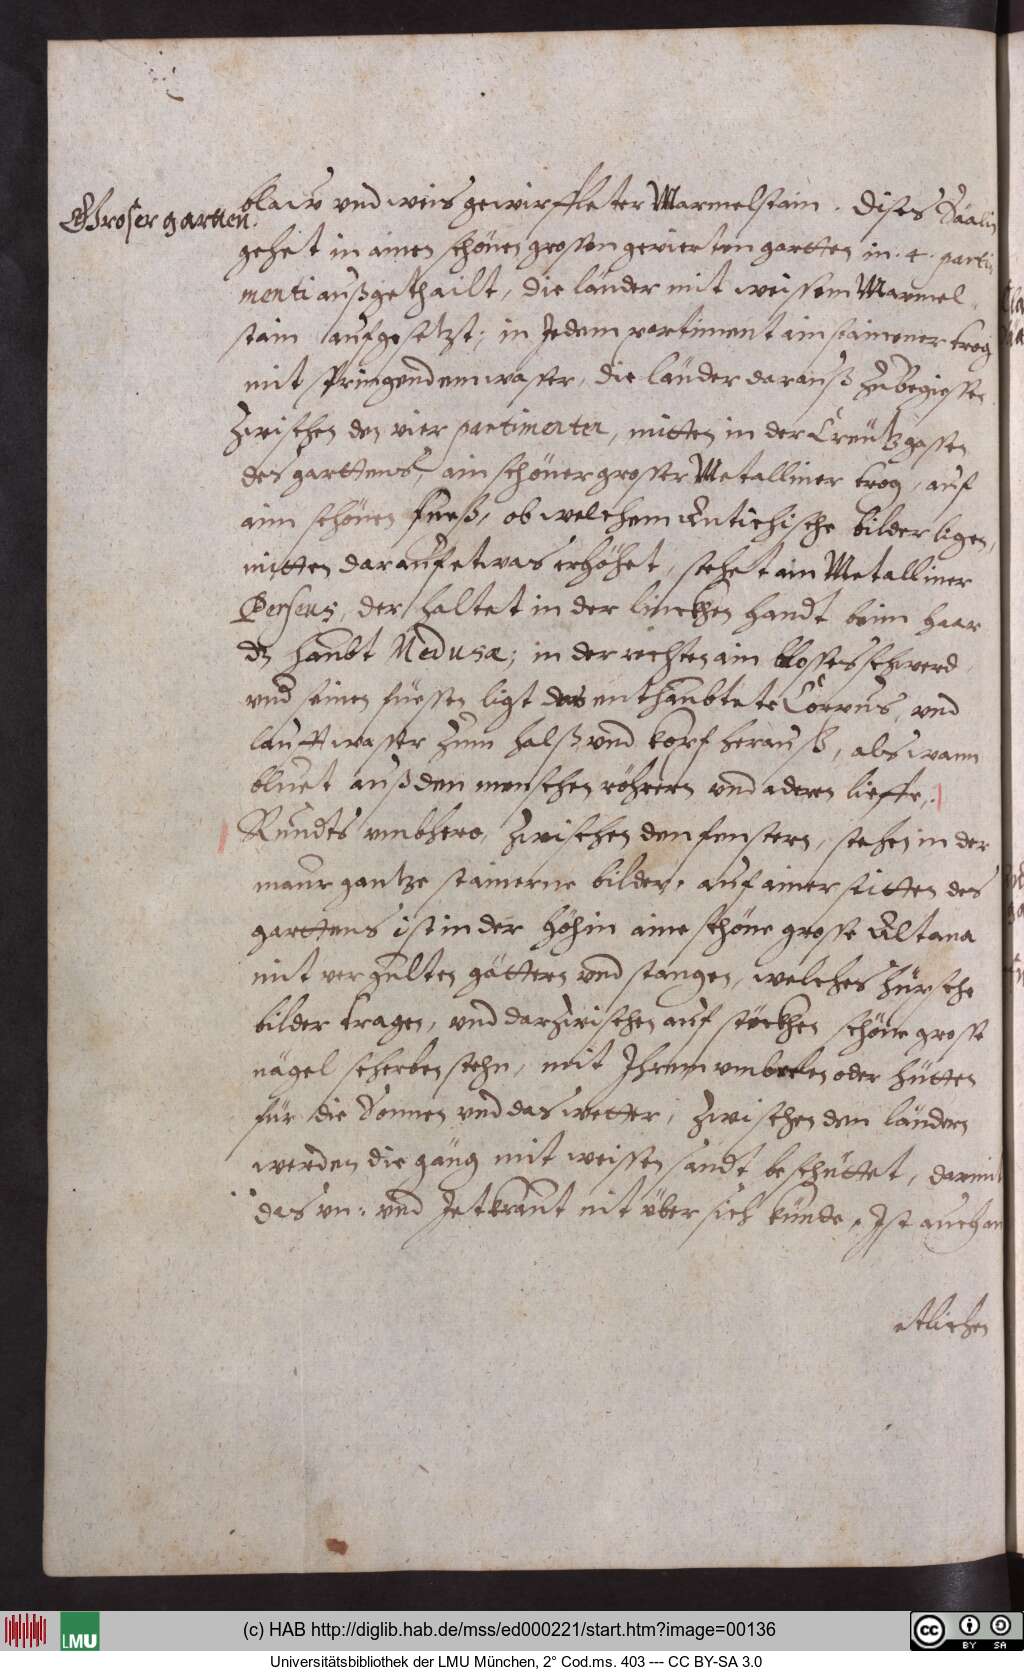 Groser gartten.
blaw vnd weis gewirffleter Marmelstain. Dises Säalin
gehet in ainen schönen grossen gevierten gartten in .4. parti
menti außgethailt, die länder mit weissem Marmel
stain aufgesetzt; in Jedem partiment ain stainener trog
mit springendem wasser, die länder darauß zu begiessen
zwischen den vier partimenten, mitten in der Creützgassen
des garttens, ain schöner grosser Metalliner trog, auf
aim schönen fueß, ob welchem Antichische bilder ligen,
mitten darauf etwas erhöhet, stehet ain Metalliner
Perseus, der haltet in der linckhen handt beim haar
dz haubt Medusæ; in der rechten ain blosses schwerd,
vnd seinen füessen ligt das enthaubtete Corpus, vnd
laufft wasser zum halß vnd kopf herauß, als wann
bluet auß den menschen röhren vnd adern lieffe,
Rundts vmbhero, zwischen den fenstern, stehen in der
maur gantze stainerne bilder. auf ainer seitten des
garttens ist in der höhin aine schöne grosse Altana
mit vergulten gättern vnd stangen, welches hürsche
bilder tragen, vnd darzwischen auf stöckhen schöne grosse
nägel scherben stehn, mit Ihrem vmbrelen oder hütten
für die Sonnen vnd das wetter, zwischen den ländern
werden die gäng mit weissen sandt beschüttet, darmit
das vn: vnd Jetkraut nit über sich künde, Ist auch an
etlichen
(c) HAB http://diglib.hab.de/mss/ed000221/start.htm?image=00136
LMU
Universitätsbibliothek der LMU München, 2° Cod.ms. 403 --- CC BY-SA 3.0
cc BY SA